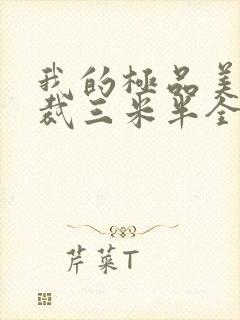 我的極品美
裁三米半全
芹菜T